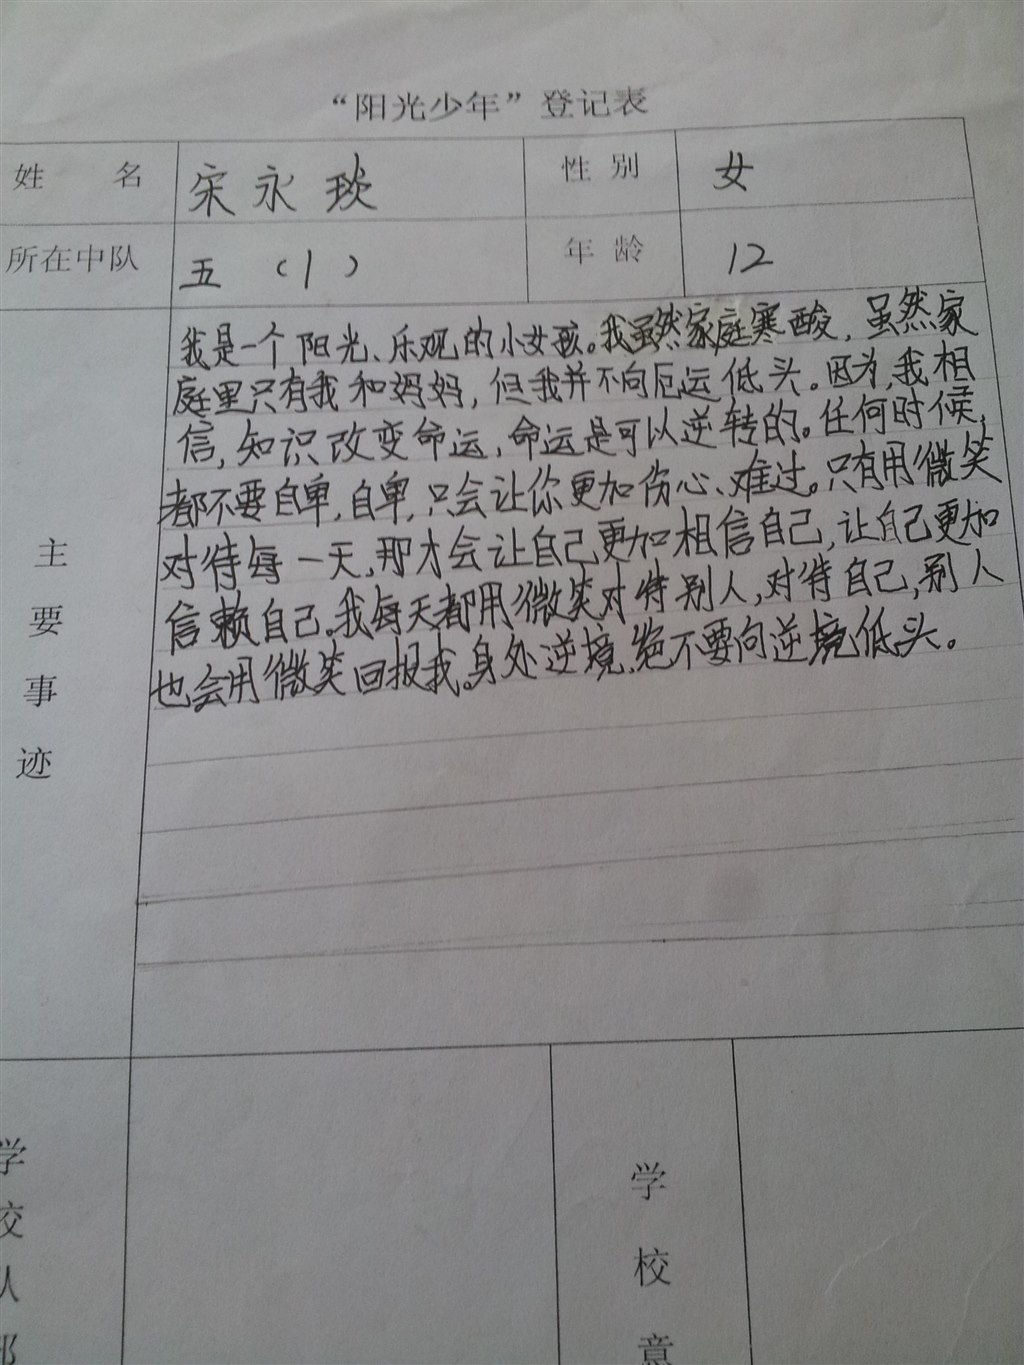 “阳光少年”登记表
姓 名 宋永琰 性别 女
所在中队 五(1) 年龄 12
主要事迹
我是一个阳光、乐观的小女孩。我虽然家庭寒酸,虽然家
庭里只有我和妈妈,但我并不向厄运低头。因为,我相
信,知识改变命运,命运是可以逆转的。任何时候,
都不要自卑,自卑,只会让你更加伤心、难过。只有用微笑
对待每一天,那才会让自己更加相信自己,让自己更加
信赖自己。我每天都用微笑对待别人,对待自己,别人
也会用微笑回报我。身处逆境,绝不要向逆境低头。
学校队部
学校意